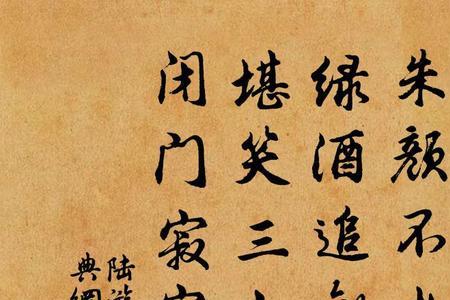 朱颜不
绿酒追
堪笑三
闭门寂
陆游
典網